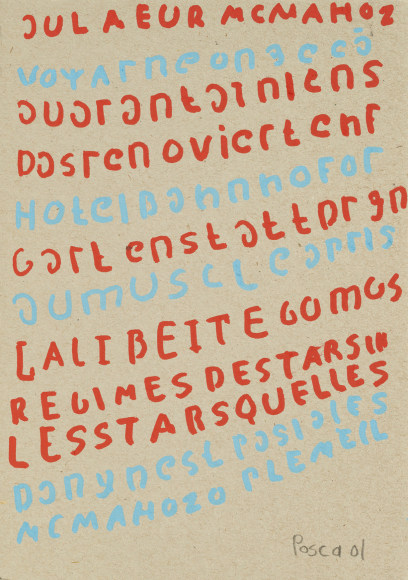 JUL A EUR MCMAHOZ
VOYArneongeeJ
quarantainiens
Dasrenoviertenf
HotelBahnhofor
Gartenstattprgn
aumuscleapris
LALIBEITEGOMOS
REGIMES DESTARSIN
LESSTARSQUELLES
Danynest Posiales
MCMAHOZO PLEMEIL
Posca 01